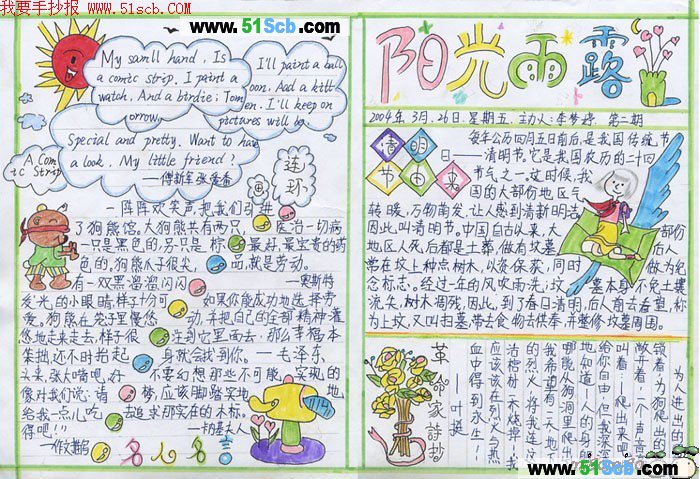 我要手抄报
www.51scb.com
www.51Scb.com
www.51Scb.com
My samll hand, Is
a comic strip. I paint a
watch, And a birdie; Tom
orrow,
I'll paint a ball
oon. Aad a kitt
en. I'll keep on
pictures will be
Special and pretty. Want to have
a look, My little friend?
A Com
ic Strip
连
环
画
一阵阵欢笑声,把我们引进
了狗熊馆。大狗熊共有两只,
一只是黑色的,另一只是棕
色的。狗熊爪子很尖,
有一双黑溜溜闪闪
发光的小眼睛,样子十分可
爱。狗熊在笼子里慢悠
悠地来走去,样子很
笨拙,还不时抬起
头来,张大嘴吧,好
像对我们说:请
给我一点儿吃
得吧!!
医治一切病
最好、最宝贵的药
品,就是劳动。
—奥斯特
如果你能成功地选择劳
动,并把自己的全部精神灌
注到它里面去,那么幸福本
身就会找到你。—毛泽东
不要幻想那些不可能实现的
梦,应该脚踏实地地
去追求那实在的木标。
名人名言
阳光雨露
2004年3月26日 星期五 主办人:李梦婷 第二期
清明
节由来
每年公历四月五日前后,是我国传统节
日——清明节。它是我国农历的二十四
节气之一。这时候,我
国的大部份地区气
转暖,万物萌发,让人感到清新明洁
因此叫清明节。中国自古以来,大部份后
地区人死后都是土葬,做有坟墓,后人
常在坟上种点树木,以资保获,同时做为纪
念标志。经过一年的风吹雨洗,坟墓本身不免土壤
流失,树木凋残,因此,到了春日清明,后人前去看望,称
为上坟,又叫扫墓,带去食物去供奉,并整修坟墓周围。
革命家诗抄
—叶挺
为人进出的
锁着,为狗爬出的
敞着;一个声音
叫着:爬出来吧,
给你自由!但我深深
地知道:人的身
哪能从狗洞里爬
我希望有一天地下
的烈火,将我连
活棺材一齐烧掉!我
应该在烈火与热
血中得到永生!
www.51Scb.com